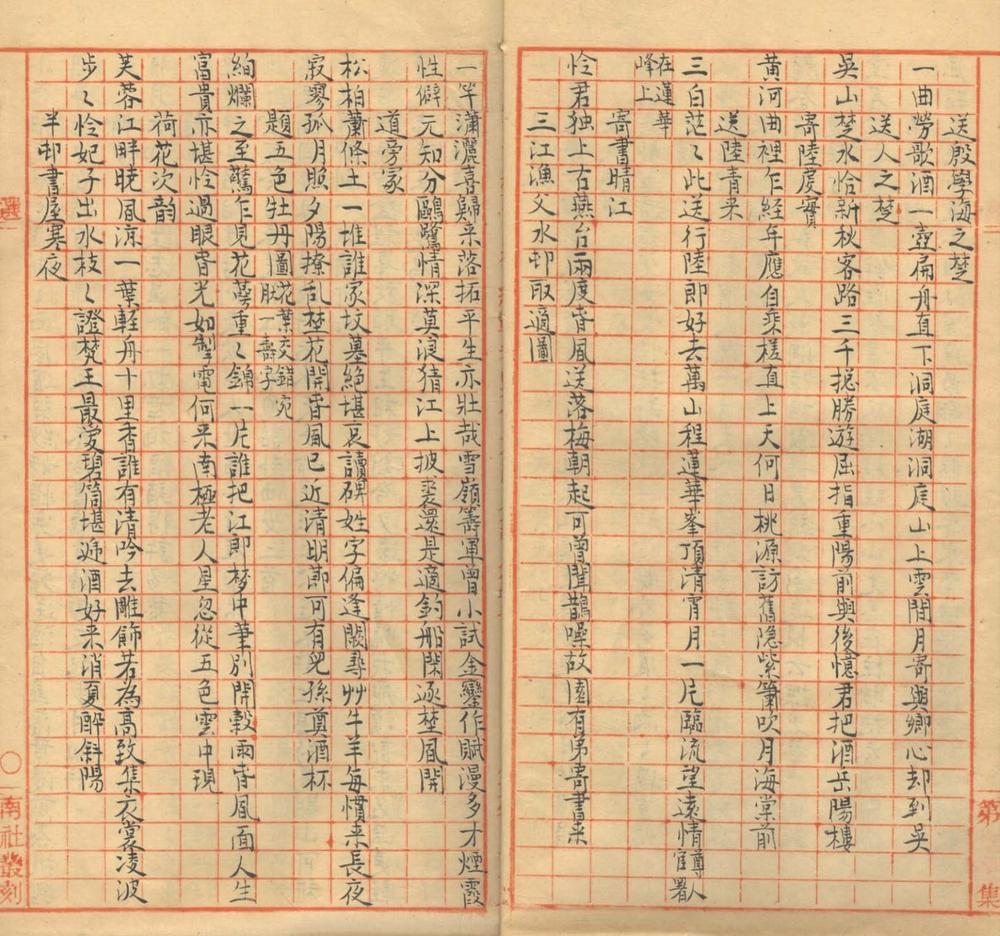 送殷學海之楚
一曲勞歌酒一壺扁舟直下洞庭湖洞庭山上雲間月寄與鄉心却到吳
送人之楚
吳山楚水恰新秋客路三千摠勝遊屈指重陽前與後憶君把酒岳陽樓
寄陸慶實
黃河曲裡乍経年應自乘槎直上天何日桃源訪舊隐紫簫吹月海棠前
送陸青来
三白茫〻此送行陸即好去萬山程蓮華峯頂清宵月一片臨流望遠情官署人
在蓮華
峰上
寄書晴江
怜君独上古燕台兩度昔凨送落梅朝起可曾聞鵲噪故園有弟寄書来
三江漁父水邨取適圖
一竿瀟灑喜歸来落拓平生亦壯哉雪嶺籌軍曾小試金鑾作賦漫多才煙霞
性僻元知分鷗鷺情深莫浪猜江上披裘還是適釣船閑逐埜凨開
道旁冢
松柏蕭條土一堆誰家坟墓絶堪哀讀碑姓字偏逢闕尋艸牛羊每慣来長夜
寂寥孤月照夕陽撩乱埜花開旹凨已近清明莭可有兒孫奠酒杯
題五色牡丹圖花葉交錯宛
肰一壽字
絢爛之至驚乍見花蕚重〻錦一片誰把江郎梦中筆別開穀雨旹凨面人生
富貴亦堪怜過眼旹光如掣電何来南極老人星忽從五色雲中現
荷花次韵
芙蓉江畔曉凨涼一葉軽舟十里香誰有清吟去雕飾若為高致集衣裳凌波
步〻怜妃子出水枝〻證梵王最愛碧筒堪逓酒好来消夏醉斜陽
半邨書屋寒夜
第
集
選
南社叢刻